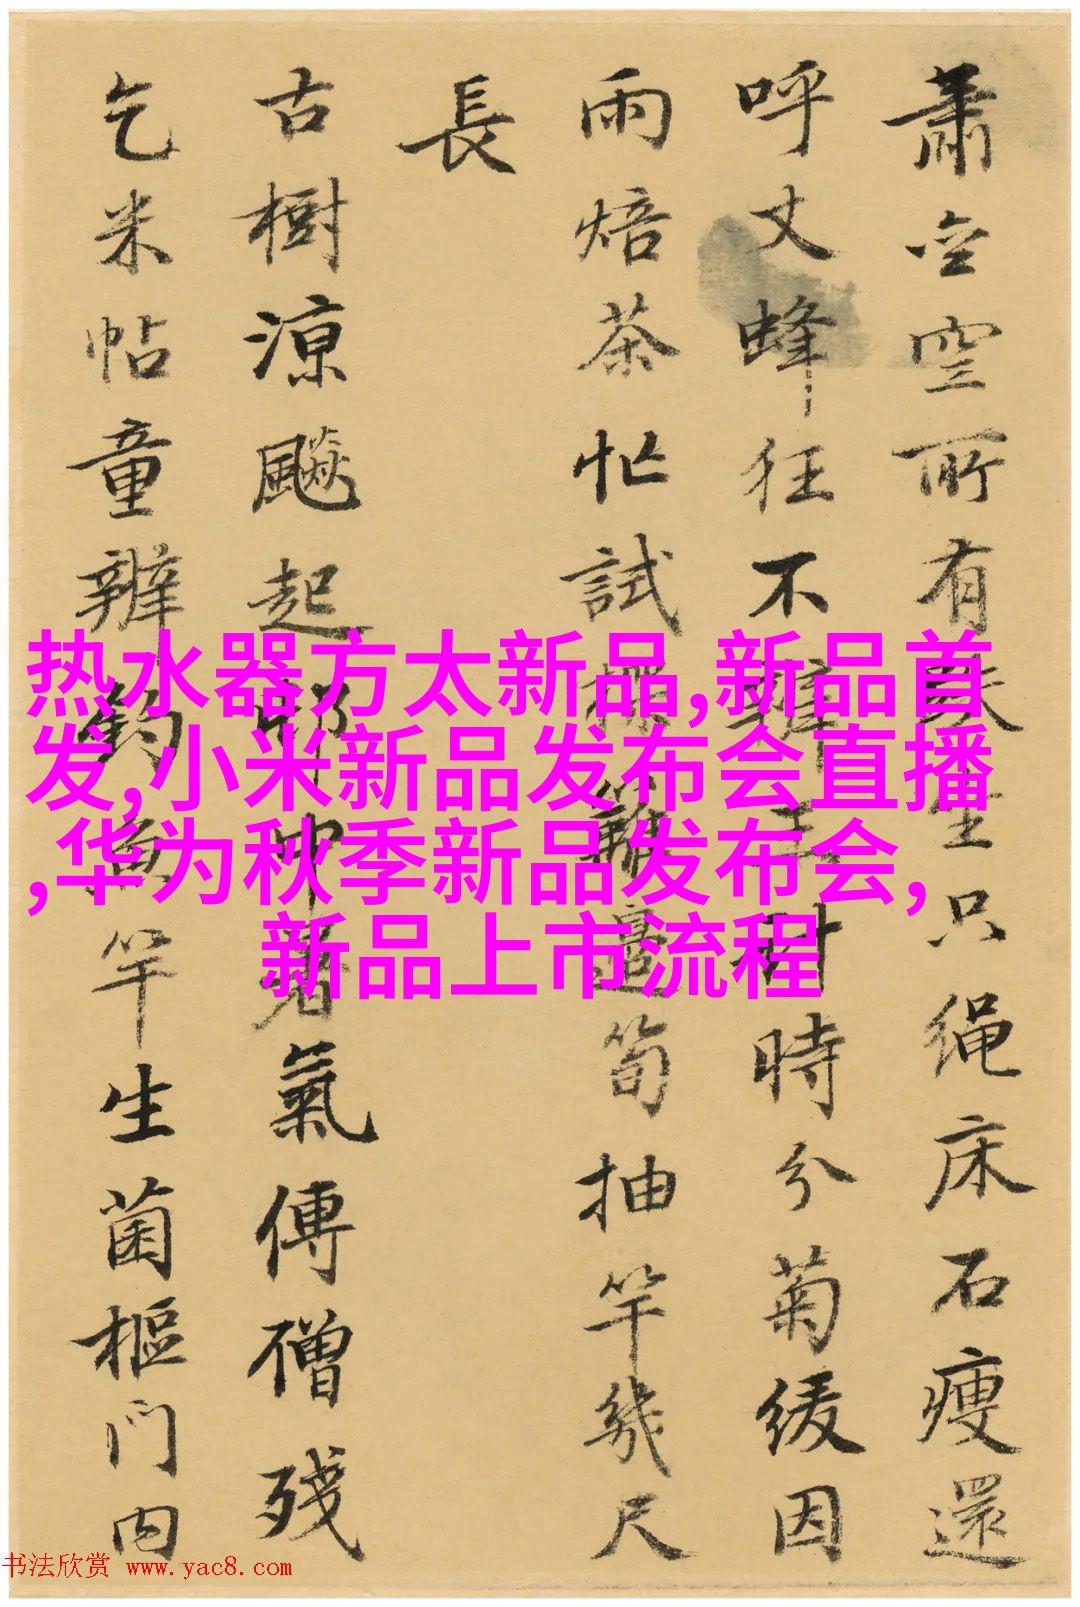 所有生只繩床石瘦還
呼丈蜂狂不辨時分菊緩因
雨焙茶忙試籬邊筍抽竿幾尺
長
古樹涼飈起中暑氣傳僧殘
乞米帖童辨釣魚竿生菌樞門内
热水器方太新品,新品首
发,小米新品发布会直播
,华为秋季新品发布会,
新品上市流程
书法欣赏 www.yac8.com